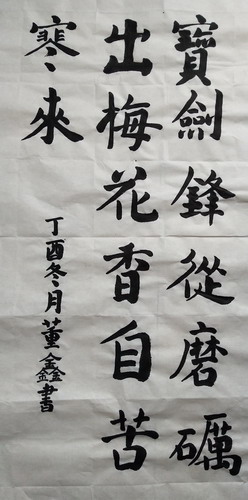 寶劍鋒從磨礪
出梅花香自苦
寒來
丁酉冬月董鑫書